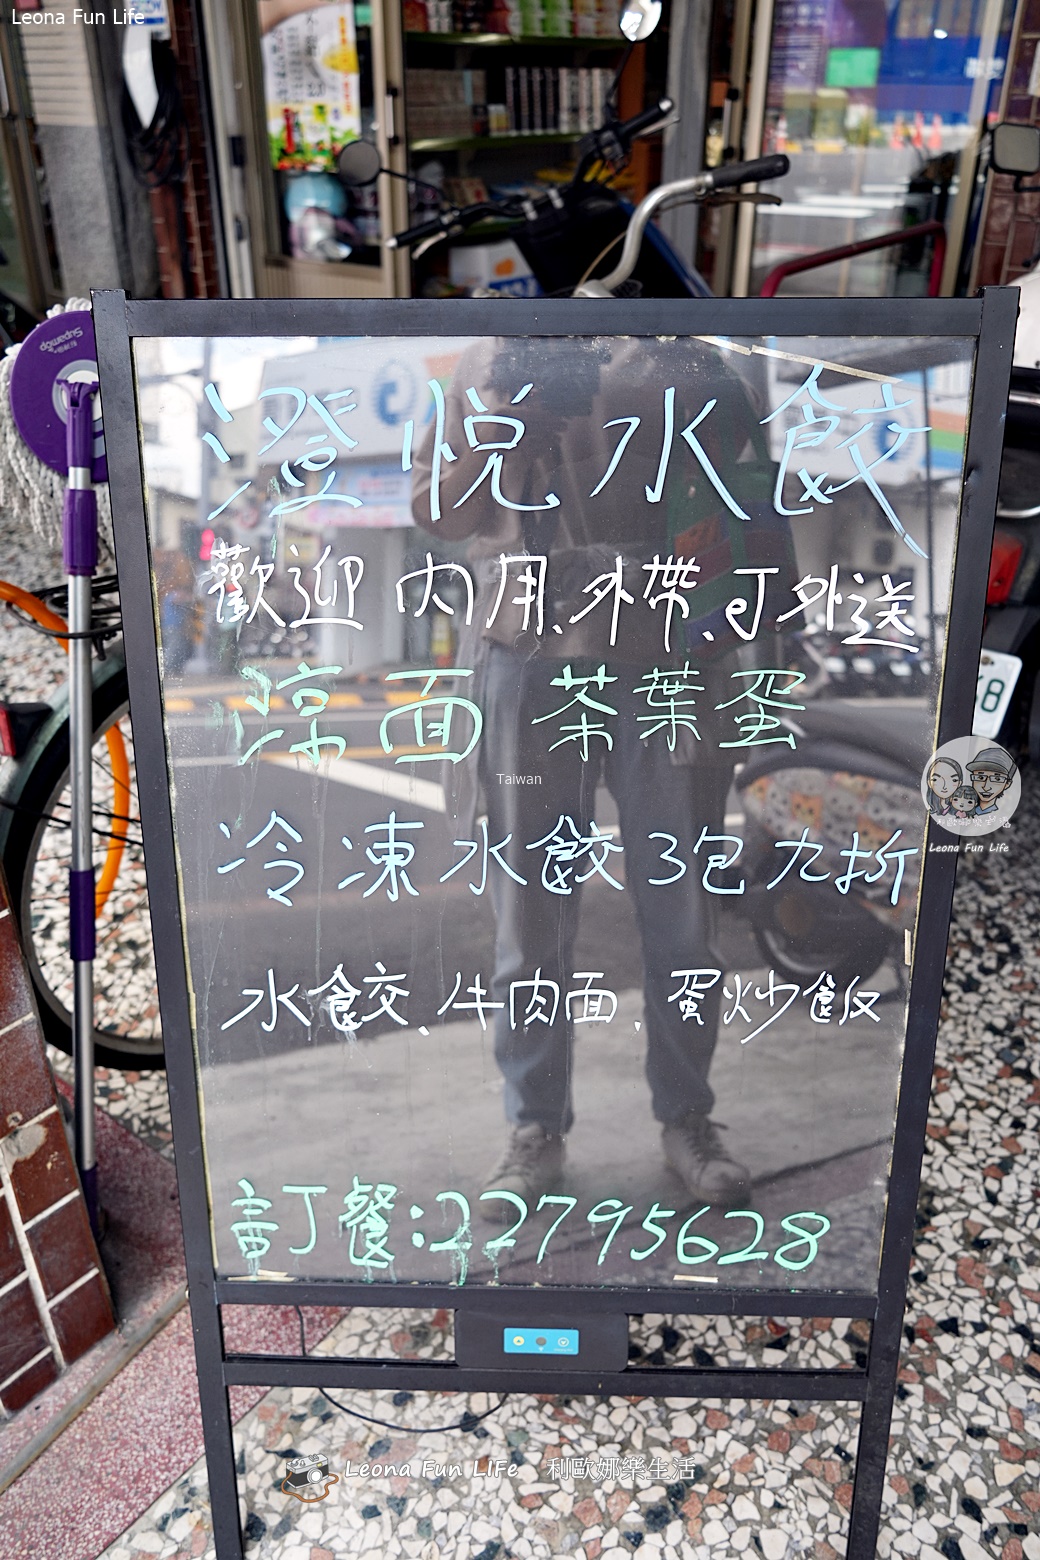 Leona Fun Life
Supamop
澄悦水餃
歡迎內用、外帶、可外送
涼面 茶葉蛋
Taiwan
冷凍水餃3包九折
Leona Fun Life
水餃、牛肉面、蛋炒飯
訂餐:22795628
Leona Fun LIfe 利歐娜樂生活